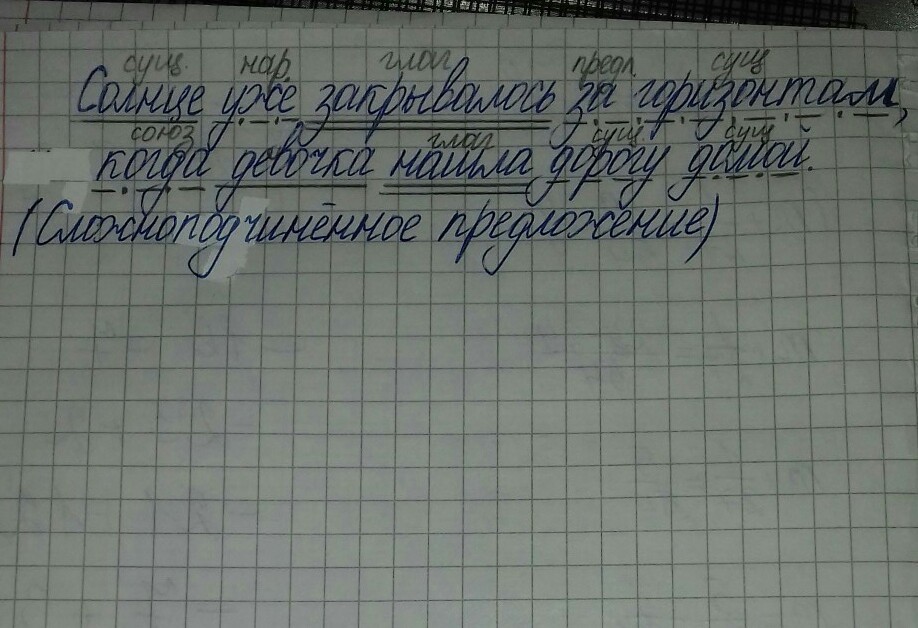 сущ. нар. глаг. предл. сущ
Солнце уже закрывалось за горизонтам,
союз глаг. сущ сущ
когда девочка нашла дорогу дамой.
(Сложноподчинённое предложение)